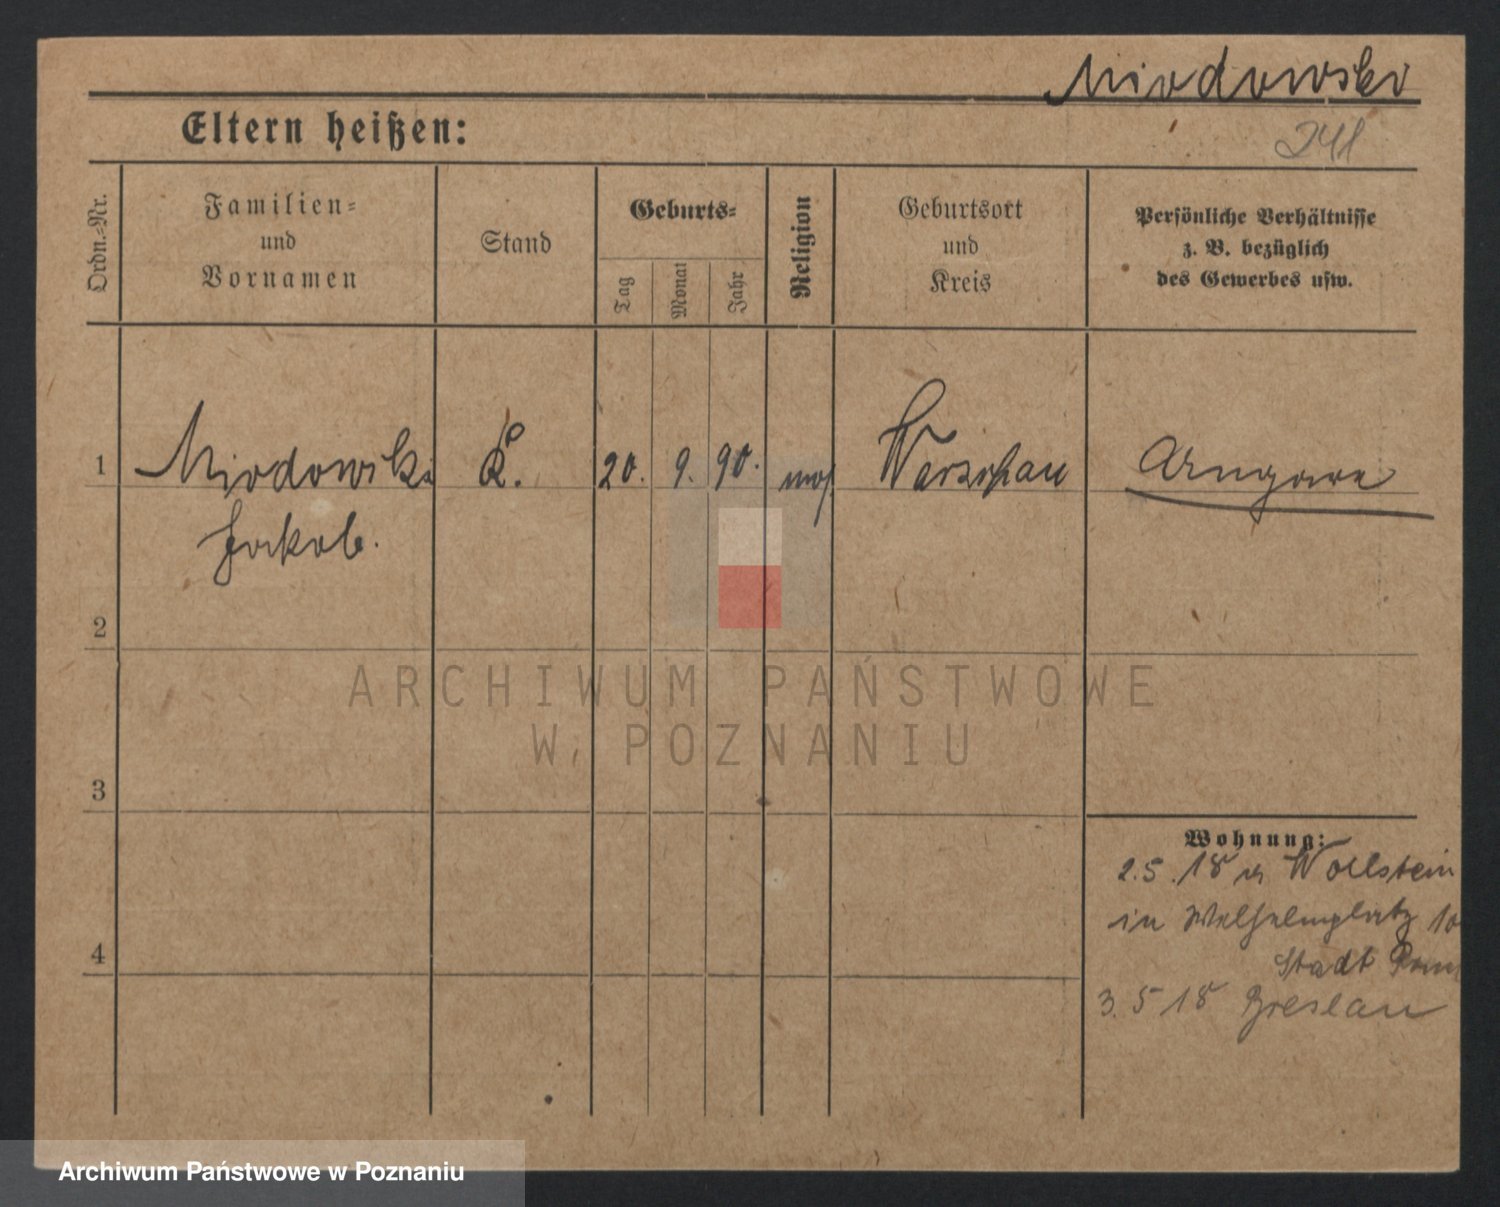 Miodowski
241
Eltern heißen:
Ordn.-Nr.
Familien-
und
Vornamen
Stand
Geburts-
Tag
Monat
Jahr
Religion
Geburtsort
und
Kreis
Persönliche Verhältnisse
z. B. bezüglich
des Gewerbes usw.
1
Miodowski
Jakob.
20. 9. 90.
mos.
Warschau
2
ARCHIWUM PAŃSTWOWE
W POZNANIU
3
Wohnung:
2.5.18 Wollstein
in Wilhelmplatz 10
Stadt
4
3.5 18 Breslau
Archiwum Państwowe w Poznaniu